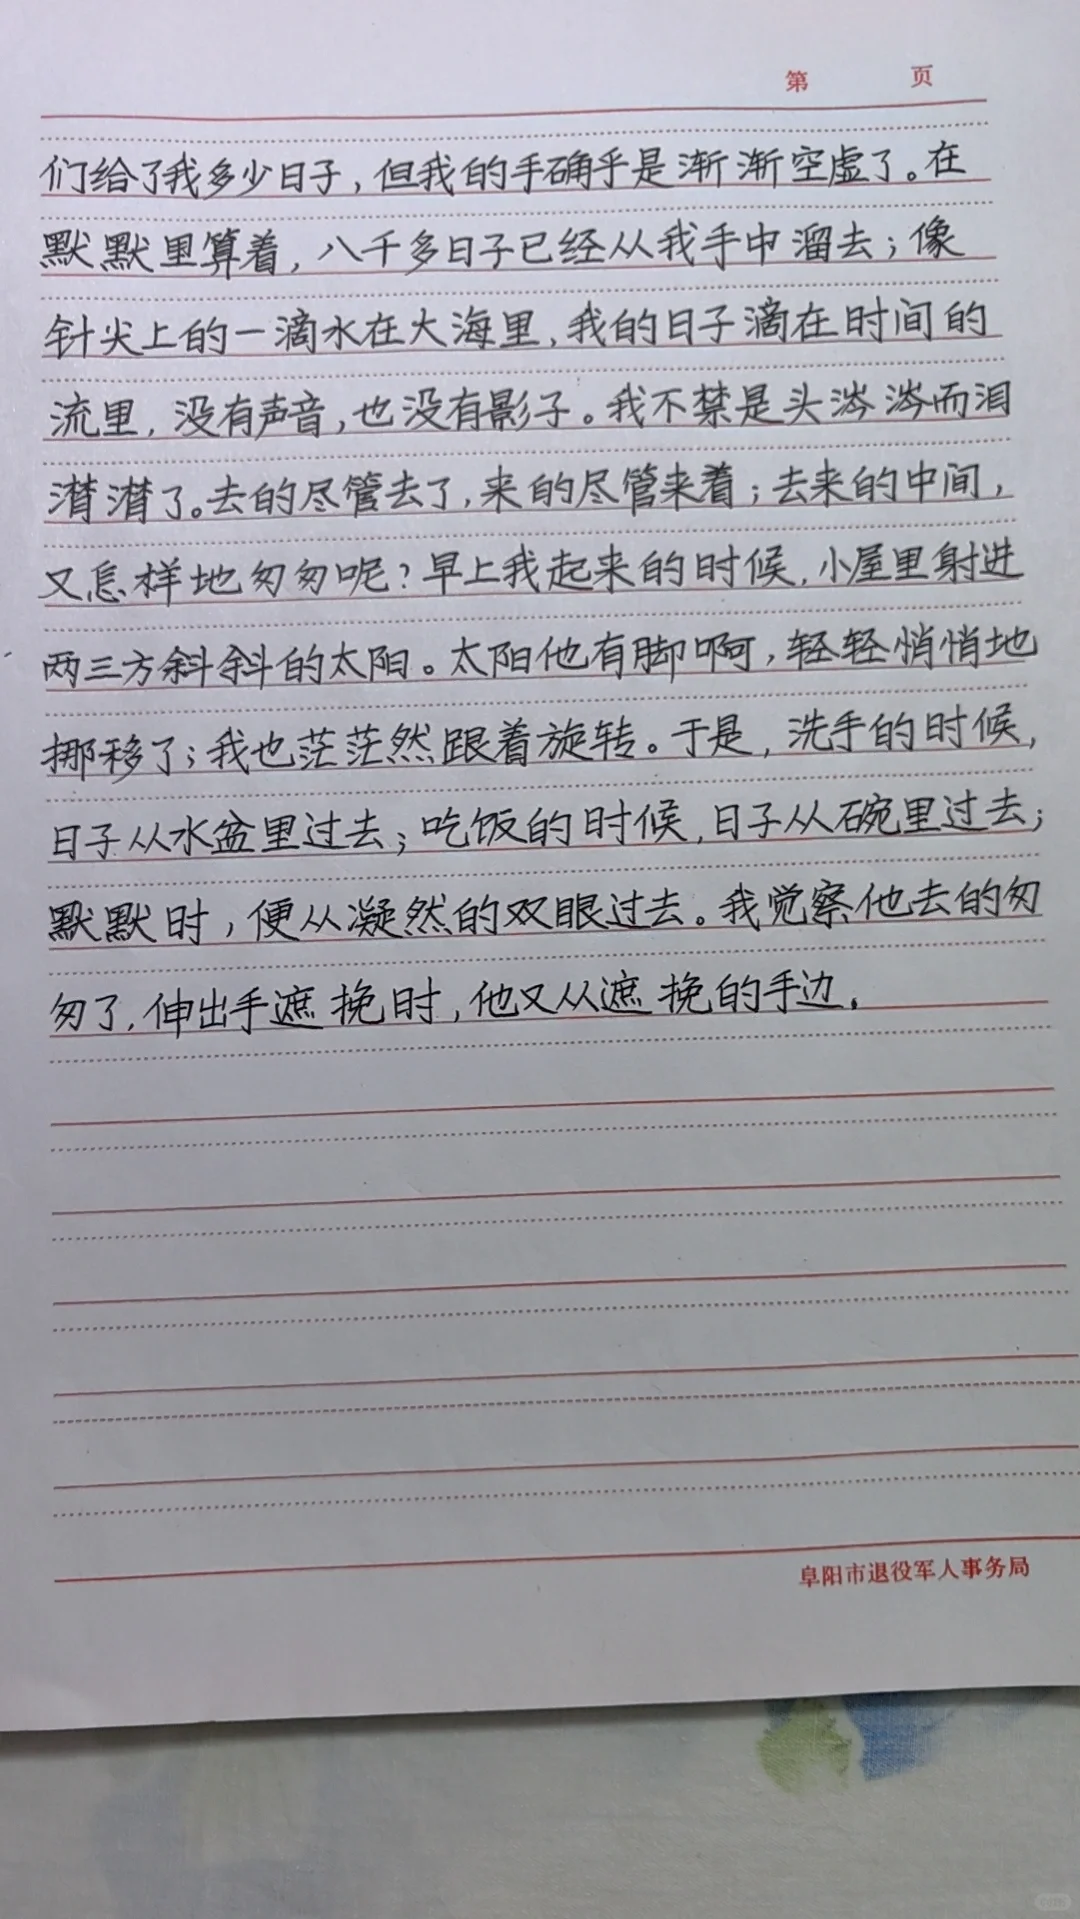 第 页
们给了我多少日子，但我的手确乎是渐渐空虚了。在
默默里算着，八千多日子已经从我手中溜去；像
针尖上的一滴水在大海里，我的日子滴在时间的
流里，没有声音，也没有影子。我不禁是头涔涔而泪
潸潸了。去的尽管去了，来的尽管来着；去来的中间，
又怎样地匆匆呢？早上我起来的时候，小屋里射进
两三方斜斜的太阳。太阳他有脚啊，轻轻悄悄地
挪移了；我也茫茫然跟着旋转。于是，洗手的时候，
日子从水盆里过去；吃饭的时候，日子从碗里过去；
默默时，便从凝然的双眼过去。我觉察他去的匆
匆了，伸出手遮挽时，他又从遮挽的手边。
阜阳市退役军人事务局